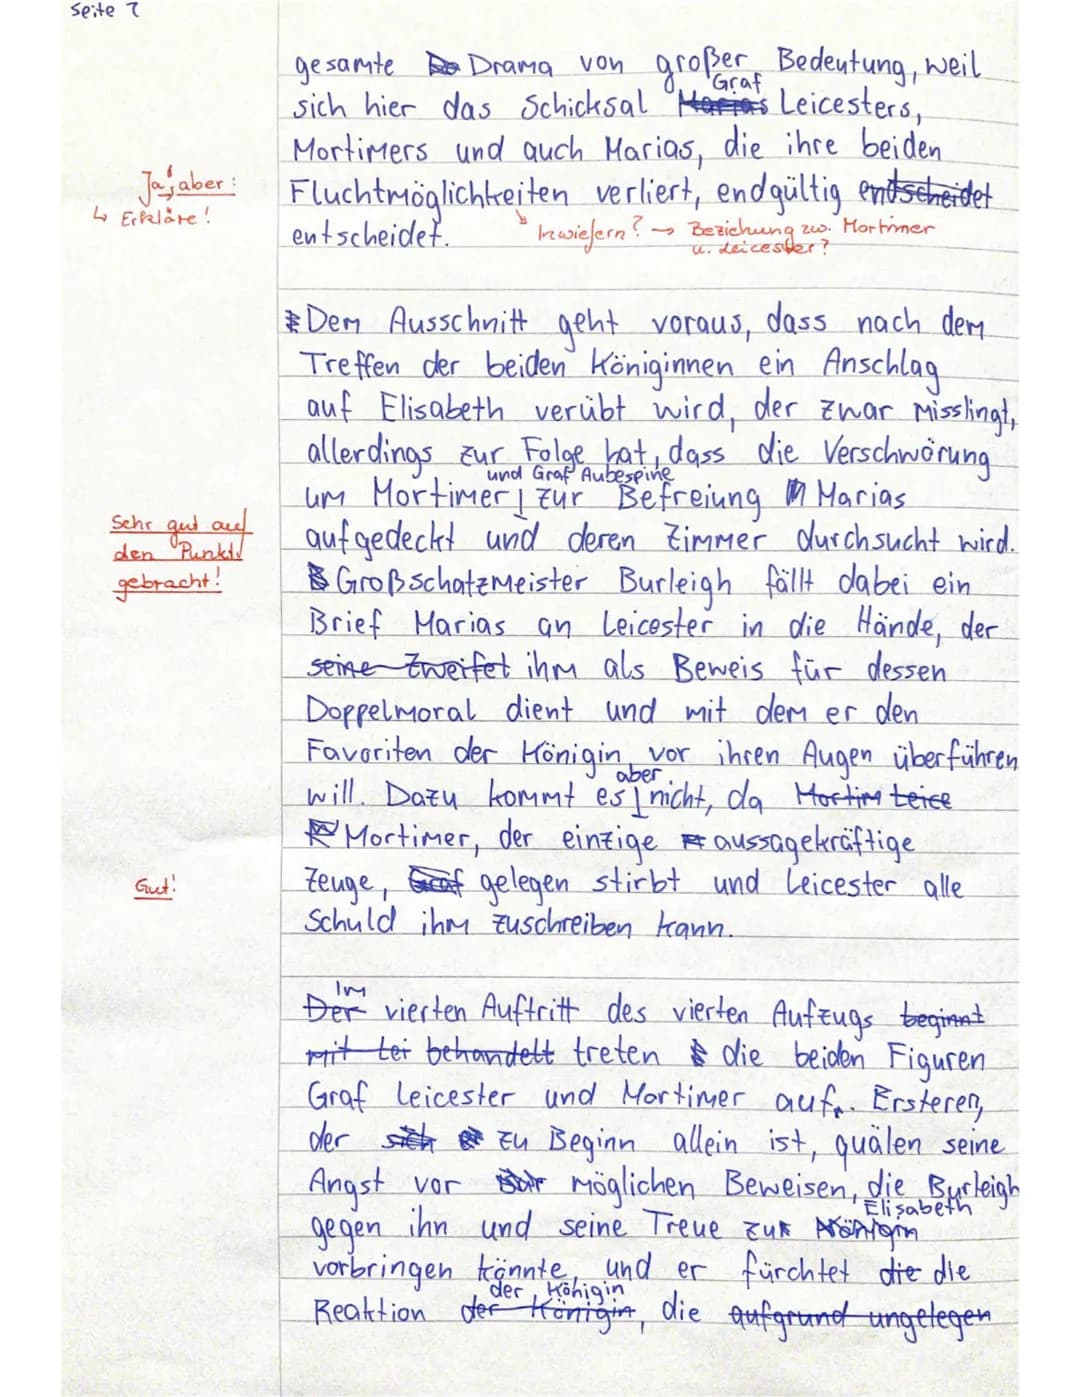 Seite 2
gesamte Drama von großer Bedeutung, weil
Graf
sich hier das Schicksal Marias Leicesters,
Mortimers und auch Marias, die ihre beiden
Ja, aber:
Fluchtmöglichkeiten verliert, endgültig endscheidet
↳ Erkläre!
entscheidet.
Inwiefern? → Beziehung zw. Mortimer
u. Leicester?
Dem Ausschnitt geht voraus, dass nach dem
Treffen der beiden Königinnen ein Anschlag
auf Elisabeth verübt wird, der zwar misslingt,
allerdings zur Folge hat, dass die Verschwörung
und Graf Aubespine
um Mortimer zur Befreiung Marias
Sehr gut auf
den Punkt
gebracht!
aufgedeckt und deren Zimmer durchsucht wird.
Großschatzmeister Burleigh fällt dabei ein
Brief Marias an Leicester in die Hände, der
seine Zweifel ihm als Beweis für dessen
Doppelmoral dient und mit dem er den
Favoriten der Königin vor ihren Augen überführen
aber
will. Dazu kommt es nicht, da Mortim Leice
Mortimer, der einzige aussagekräftige
Gut!
Zeuge, Graf gelegen stirbt und Leicester alle
Schuld ihm zuschreiben kann.
Im
Der vierten Auftritt des vierten Aufzugs beginnt
mit Lei behandelt treten die beiden Figuren
Graf Leicester und Mortimer auf. Ersteren,
der sich zu Beginn allein ist, quälen seine
Angst vor möglichen Beweisen, die Burleigh
Elisabeth
gegen ihn und seine Treue zur Königin
vorbringen könnte, und er fürchtet die die
der Königin
Reaktion der Königin, die aufgrund ungelegen